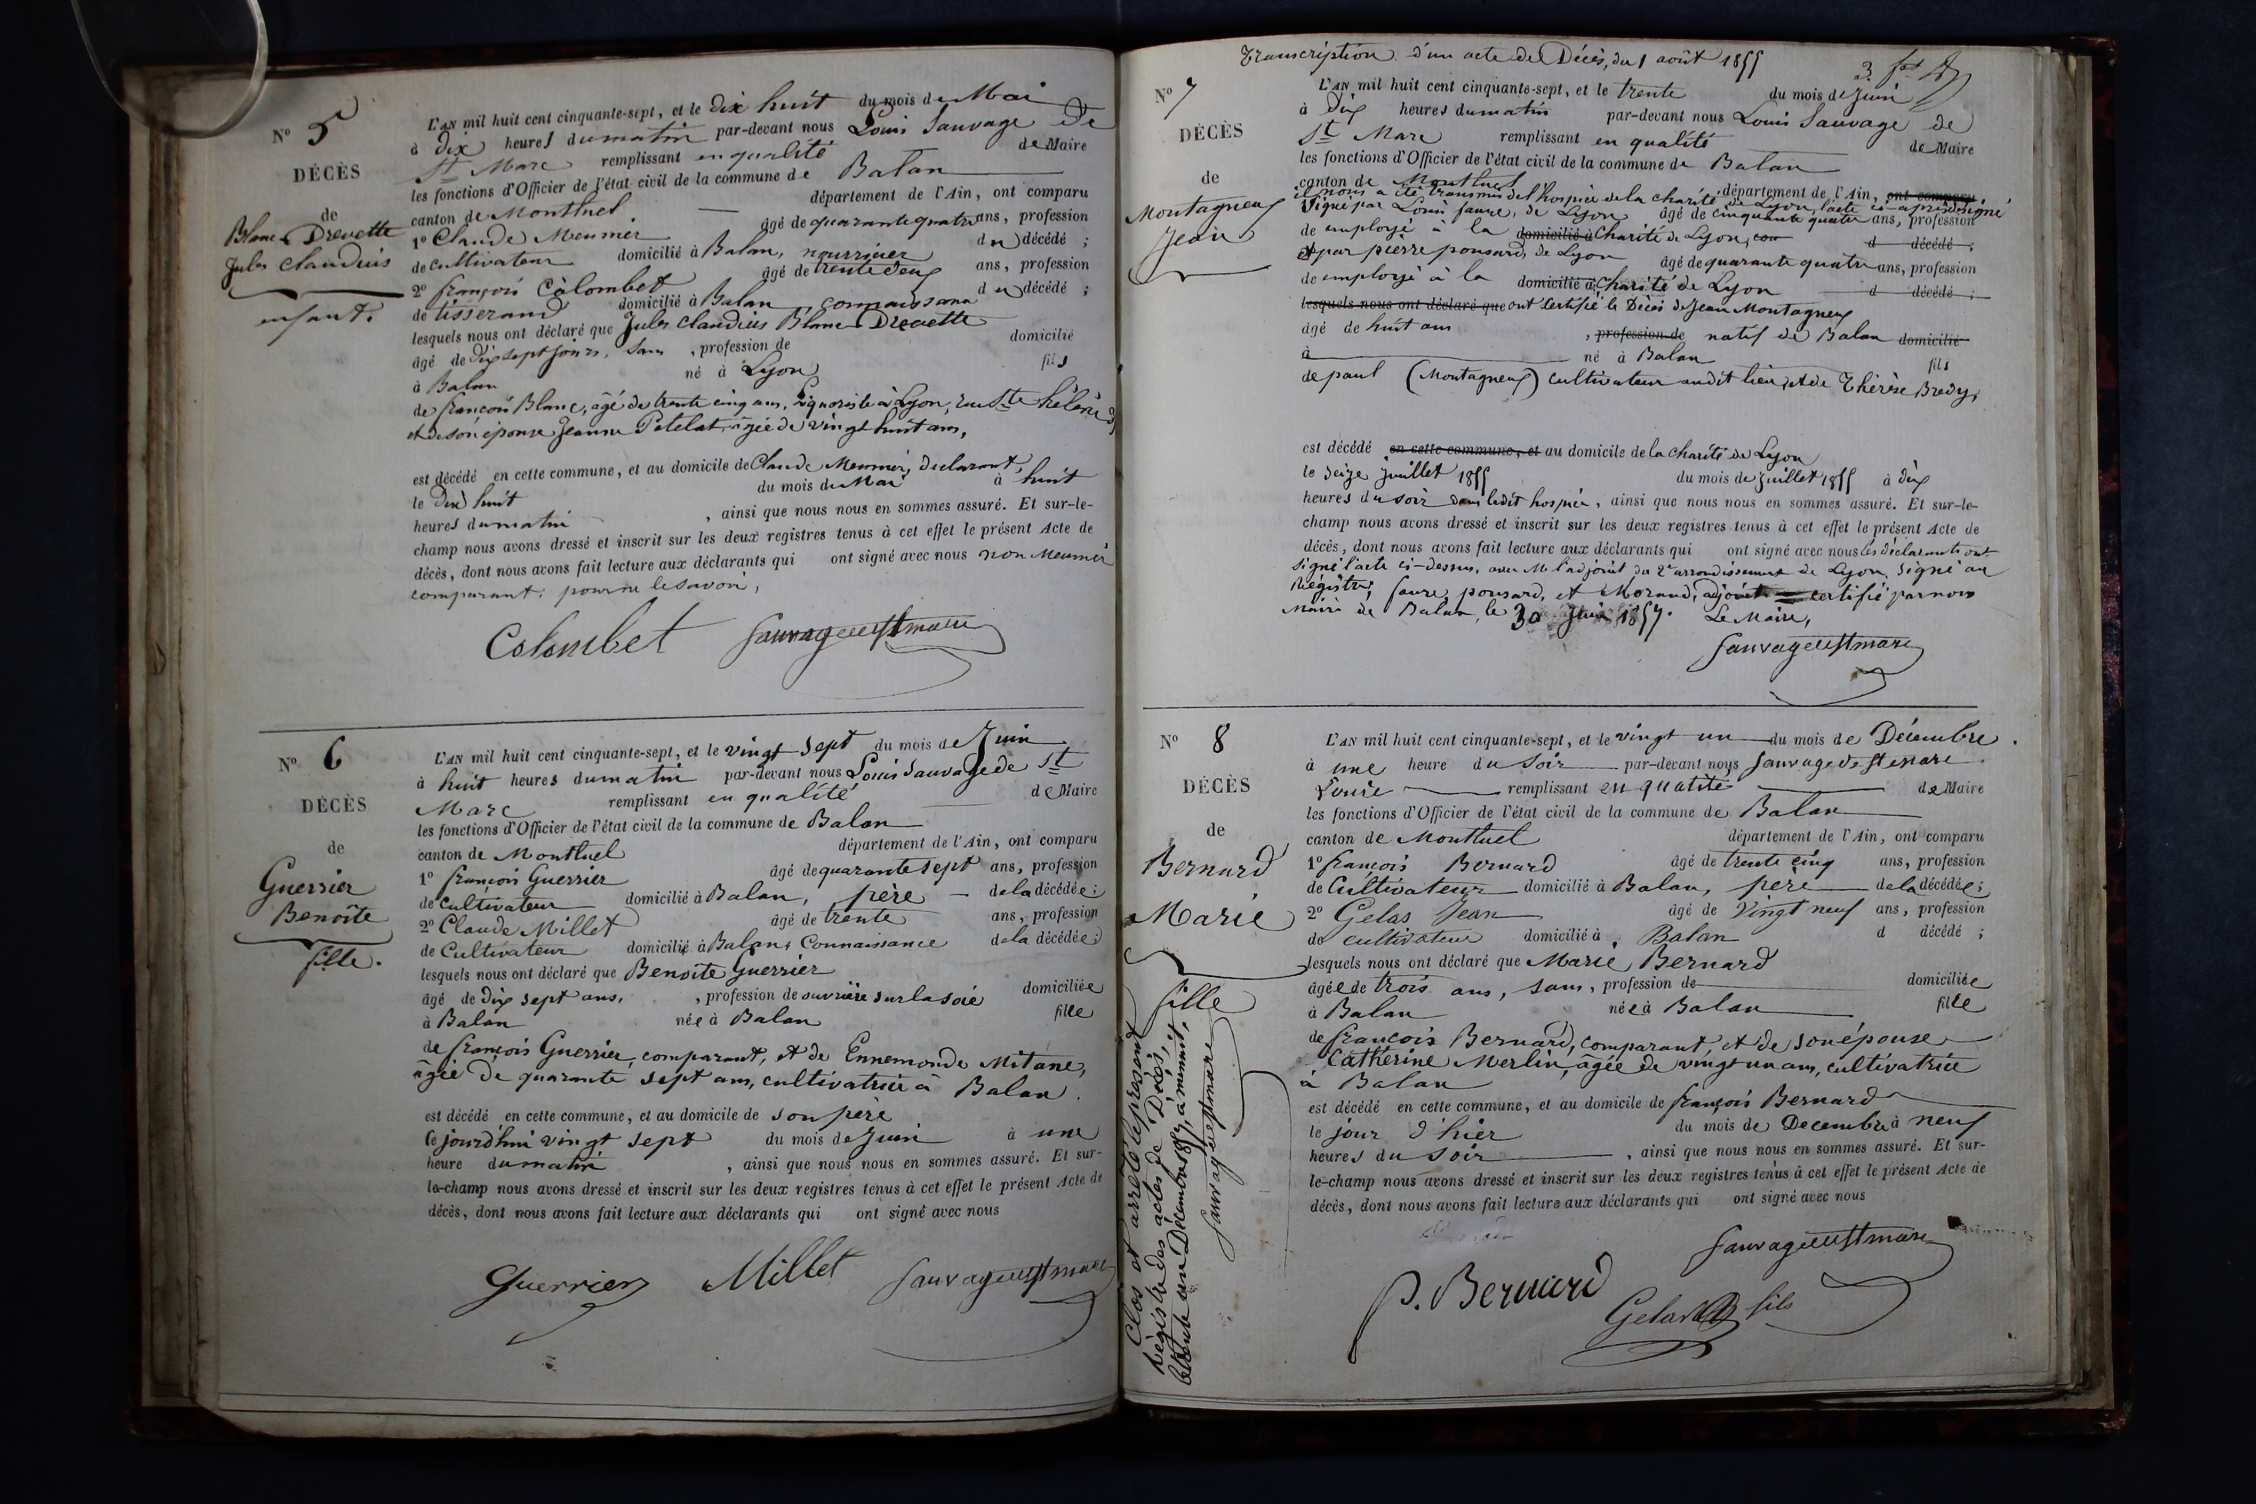 Nº 5
DÉCÈS
de
Blanc Drevette
Jules Claudius
enfant.
L'AN mil huit cent cinquante-sept, et le dix huit du mois de Mai
à dix heures du matin par-devant nous Louis Sauvage de
St Marc remplissant en qualité de Maire
les fonctions d'Officier de l'état civil de la commune de Balan
canton de Montluel département de l'Ain, ont comparu
1º Claude Meunier âgé de quarante quatre ans, profession
de cultivateur domicilié à Balan, nourricier du décédé ;
2º françois Colombet âgé de trente deux ans, profession
de tisserand domicilié à Balan, connaissance du décédé ;
lesquels nous ont déclaré que Jules Claudius Blanc Drevette
âgé de dix sept jours, sans , profession de domicilié
à Balan né à Lyon fils
de françois Blanc, âgé de trente cinq ans, Liquoriste à Lyon, rue Ste hélène
et de son épouse Jeanne Petelat, âgée de vingt huit ans,
est décédé en cette commune, et au domicile de Claude Meunier, declarant,
le dix huit du mois de Mai à huit
heures du matin , ainsi que nous nous en sommes assuré. Et sur-le-
champ nous avons dressé et inscrit sur les deux registres tenus à cet effet le présent Acte de
décès, dont nous avons fait lecture aux déclarants qui ont signé avec nous non Meunier
comparant, pour ne le savoir,
Colombet Sauvage de St marc
Nº 6
DÉCÈS
de
Guerrier
Benoîte
fille.
L'AN mil huit cent cinquante-sept, et le vingt sept du mois de Juin
à huit heures du matin par-devant nous Louis Sauvage de St
Marc remplissant en qualité de Maire
les fonctions d'Officier de l'état civil de la commune de Balan
canton de Montluel département de l'Ain, ont comparu
1º françois Guerrier âgé de quarante sept ans, profession
de cultivateur domicilié à Balan, père de la décédée ;
2º Claude Millet âgé de trente ans, profession
de Cultivateur domicilié à Balan, Connaissance de la décédée ;
lesquels nous ont déclaré que Benoîte Guerrier
âgé de dix sept ans, , profession de ouvrière sur la soie domiciliée
à Balan née à Balan fille
de françois Guerrier, comparant, et de Ennemonde Mitane,
âgée de quarante sept ans, cultivatrice à Balan.
est décédé en cette commune, et au domicile de son père
le jourd'hui vingt sept du mois de Juin à une
heure du matin , ainsi que nous nous en sommes assuré. Et sur-
le-champ nous avons dressé et inscrit sur les deux registres tenus à cet effet le présent Acte de
décès, dont nous avons fait lecture aux déclarants qui ont signé avec nous
Guerrier Millet Sauvage de St marc
Transcription d'un acte de Décès, du 1 août 1855
Nº 7
DÉCÈS
de
Montagneux
Jean
L'AN mil huit cent cinquante-sept, et le trente du mois de Juin
à dix heures du matin par-devant nous Louis Sauvage de
St Marc remplissant en qualité de Maire
les fonctions d'Officier de l'état civil de la commune de Balan
canton de Montluel département de l'Ain, ont comparu
il nous a été transmis de l'hospice de la charité de Lyon, l'acte ci-après désigné
Signé par Louis faure, de Lyon âgé de cinquante quatre ans, profession
de employé à la domicilié à Charité de Lyon, d décédé ;
et par pierre ponsard, de Lyon âgé de quarante quatre ans, profession
de employé à la domicilié à Charité de Lyon d décédé ;
lesquels nous ont déclaré que ont certifié le Décès de Jean Montagneux
âgé de huit ans , profession de natif de Balan domicilié
à né à Balan fils
de paul (Montagneux) cultivateur audit lieu, et de Thérèse Bredy,
est décédé en cette commune, et au domicile de la Charité de Lyon
le seize juillet 1855 du mois de Juillet 1855 à dix
heures du soir dans ledit hospice, ainsi que nous nous en sommes assuré. Et sur-le-
champ nous avons dressé et inscrit sur les deux registres tenus à cet effet le présent Acte de
décès, dont nous avons fait lecture aux déclarants qui ont signé avec nous les déclarants ont
signé l'acte ci-dessus, avec Mr l'adjoint du 2e arrondissement de Lyon. Signé au
Régistre, faure, ponsard, et Morand, adjoint certifié par nous
Maire de Balan, le 30 Juin 1857. Le Maire,
Sauvage de St marc
Nº 8
DÉCÈS
de
Bernard
Marie
fille
L'AN mil huit cent cinquante-sept, et le vingt un du mois de Décembre.
à une heure du soir par-devant nous Sauvage de St marc
Louis remplissant en qualité de Maire
les fonctions d'Officier de l'état civil de la commune de Balan
canton de Montluel département de l'Ain, ont comparu
1º françois Bernard âgé de trente cinq ans, profession
de Cultivateur domicilié à Balan, père de la décédée ;
2º Gelas Jean âgé de Vingt neuf ans, profession
de cultivateur domicilié à Balan d décédé ;
lesquels nous ont déclaré que Marie Bernard
âgée de trois ans, sans, profession de domiciliée
à Balan née à Balan fille
de françois Bernard, comparant, et de son épouse
Catherine Merlin, âgée de vingt un ans, cultivatrice
à Balan
est décédé en cette commune, et au domicile de françois Bernard
le jour d'hier du mois de Decembre à neuf
heures du soir , ainsi que nous nous en sommes assuré. Et sur-
le-champ nous avons dressé et inscrit sur les deux registres tenus à cet effet le présent Acte de
décès, dont nous avons fait lecture aux déclarants qui ont signé avec nous
Sauvage de St marc
P. Bernard
Gelas fils
Clos et arrêté le présent
Régistre des actes de Décès,
le trente un Décembre 1857, à minuit,
Sauvage de St marc